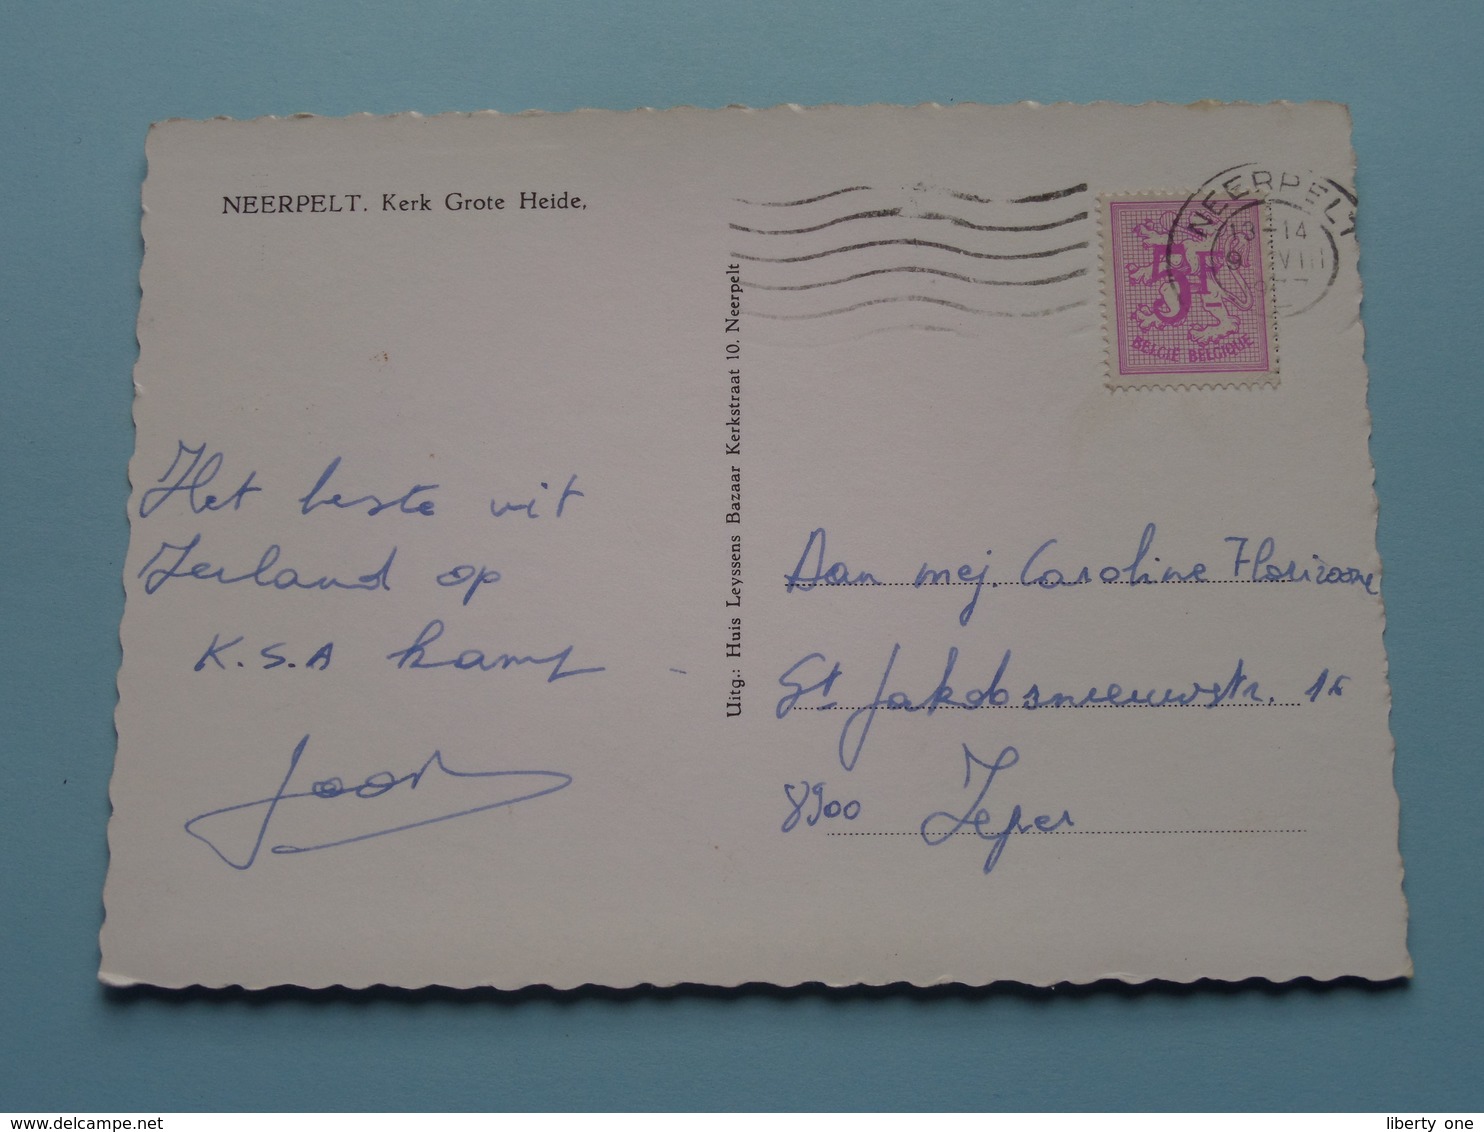 NEERPELT. Kerk Grote Heide,
Het beste uit
Ierland op
K.S.A kamp
Joost
Uitg.: Huis Leyssens Bazaar Kerkstraat 10. Neerpelt
NEERPELT
13-14
9 VIII
5F
BELGIË BELGIQUE
Aan mej. Caroline Florizoone
St Jakobsnieuwstr.
8900 Ieper
© Delcampe.net
liberty one